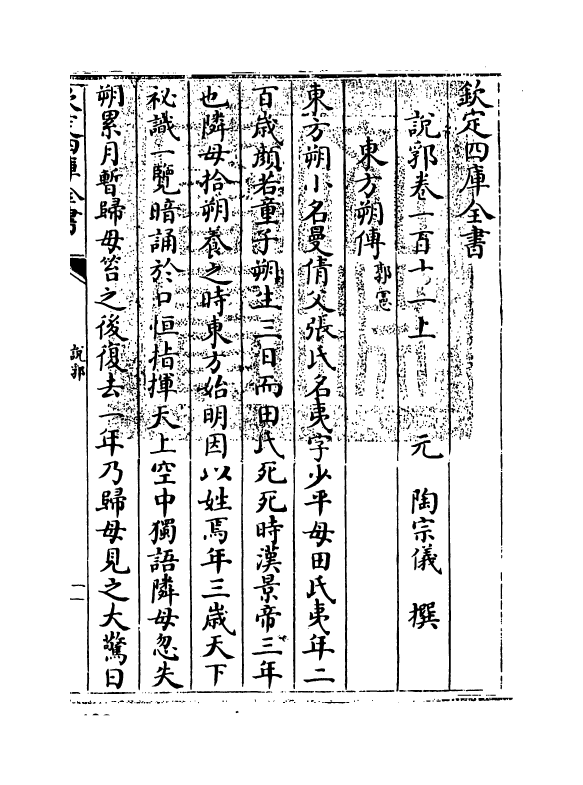 欽定四庫全書
說郛卷一百十一上　　元　陶宗儀　撰
東方朔傳　郭憲
東方朔小名曼倩父張氏名夷字少平母田氏夷年二
百歲顏若童子朔生三日而田氏死死時漢景帝三年
也隣母拾朔養之時東方始明因以姓焉年三歲天下
祕識一覽暗誦於口恒指揮天上空中獨語隣母忽失
朔累月暫歸母笞之後復去一年乃歸母見之大驚曰
欽定四庫全書
說郛
一